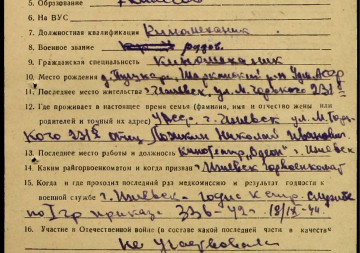 5. Образование 7 классов
6. На ВУС
7. Должностная квалификация Киномеханик
8. Военное звание рядов.
9. Гражданская специальность Киномеханик
10. Место рождения Шарканский р-н Удм. АССР
11. Последнее место жительства г. Ижевск, ул. М. Горького 231
12. Где проживает в настоящее время семья (фамилия, имя и отчество жены или
родителей и точный их адрес) г. Ижевск ул. М. Горь-
кого отец Николай Иванович
13. Последнее место работы и должность Кинотеатр „Одеон" г. Ижевск
14. Каким райгорвоенкоматом и когда призван Ижевск Горвоенкомат
15. Когда и где проходил последний раз медкомиссию и результат годности к
военной службе г. Ижевск - Годен к стр. службе
по I гр приказ - 336-42г. 18/IX-44.
16. Участие в Отечественной войне (в составе какой последней части и в качестве
Не участвовал